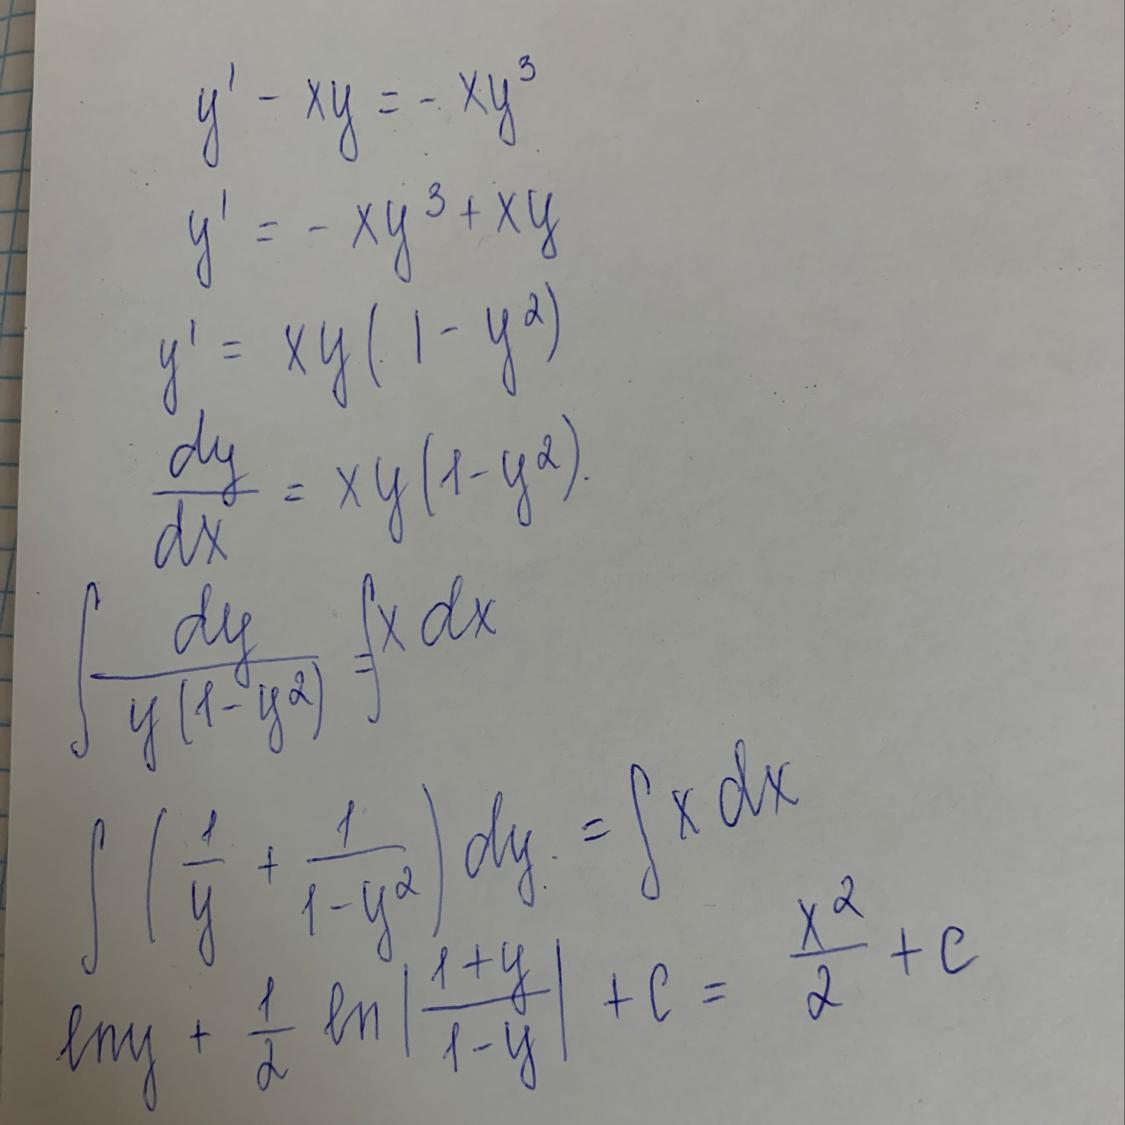 y' - xy = - xy³
y' = - xy³ + xy
y' = xy(1 - y²)
dy/dx = xy(1 - y²).
∫ dy/(y(1 - y²)) = ∫ x dx
∫ (1/y + 1/(1 - y²)) dy. = ∫ x dx
lny + 1/2 ln|(1+y)/(1-y)| + c = x²/2 + c